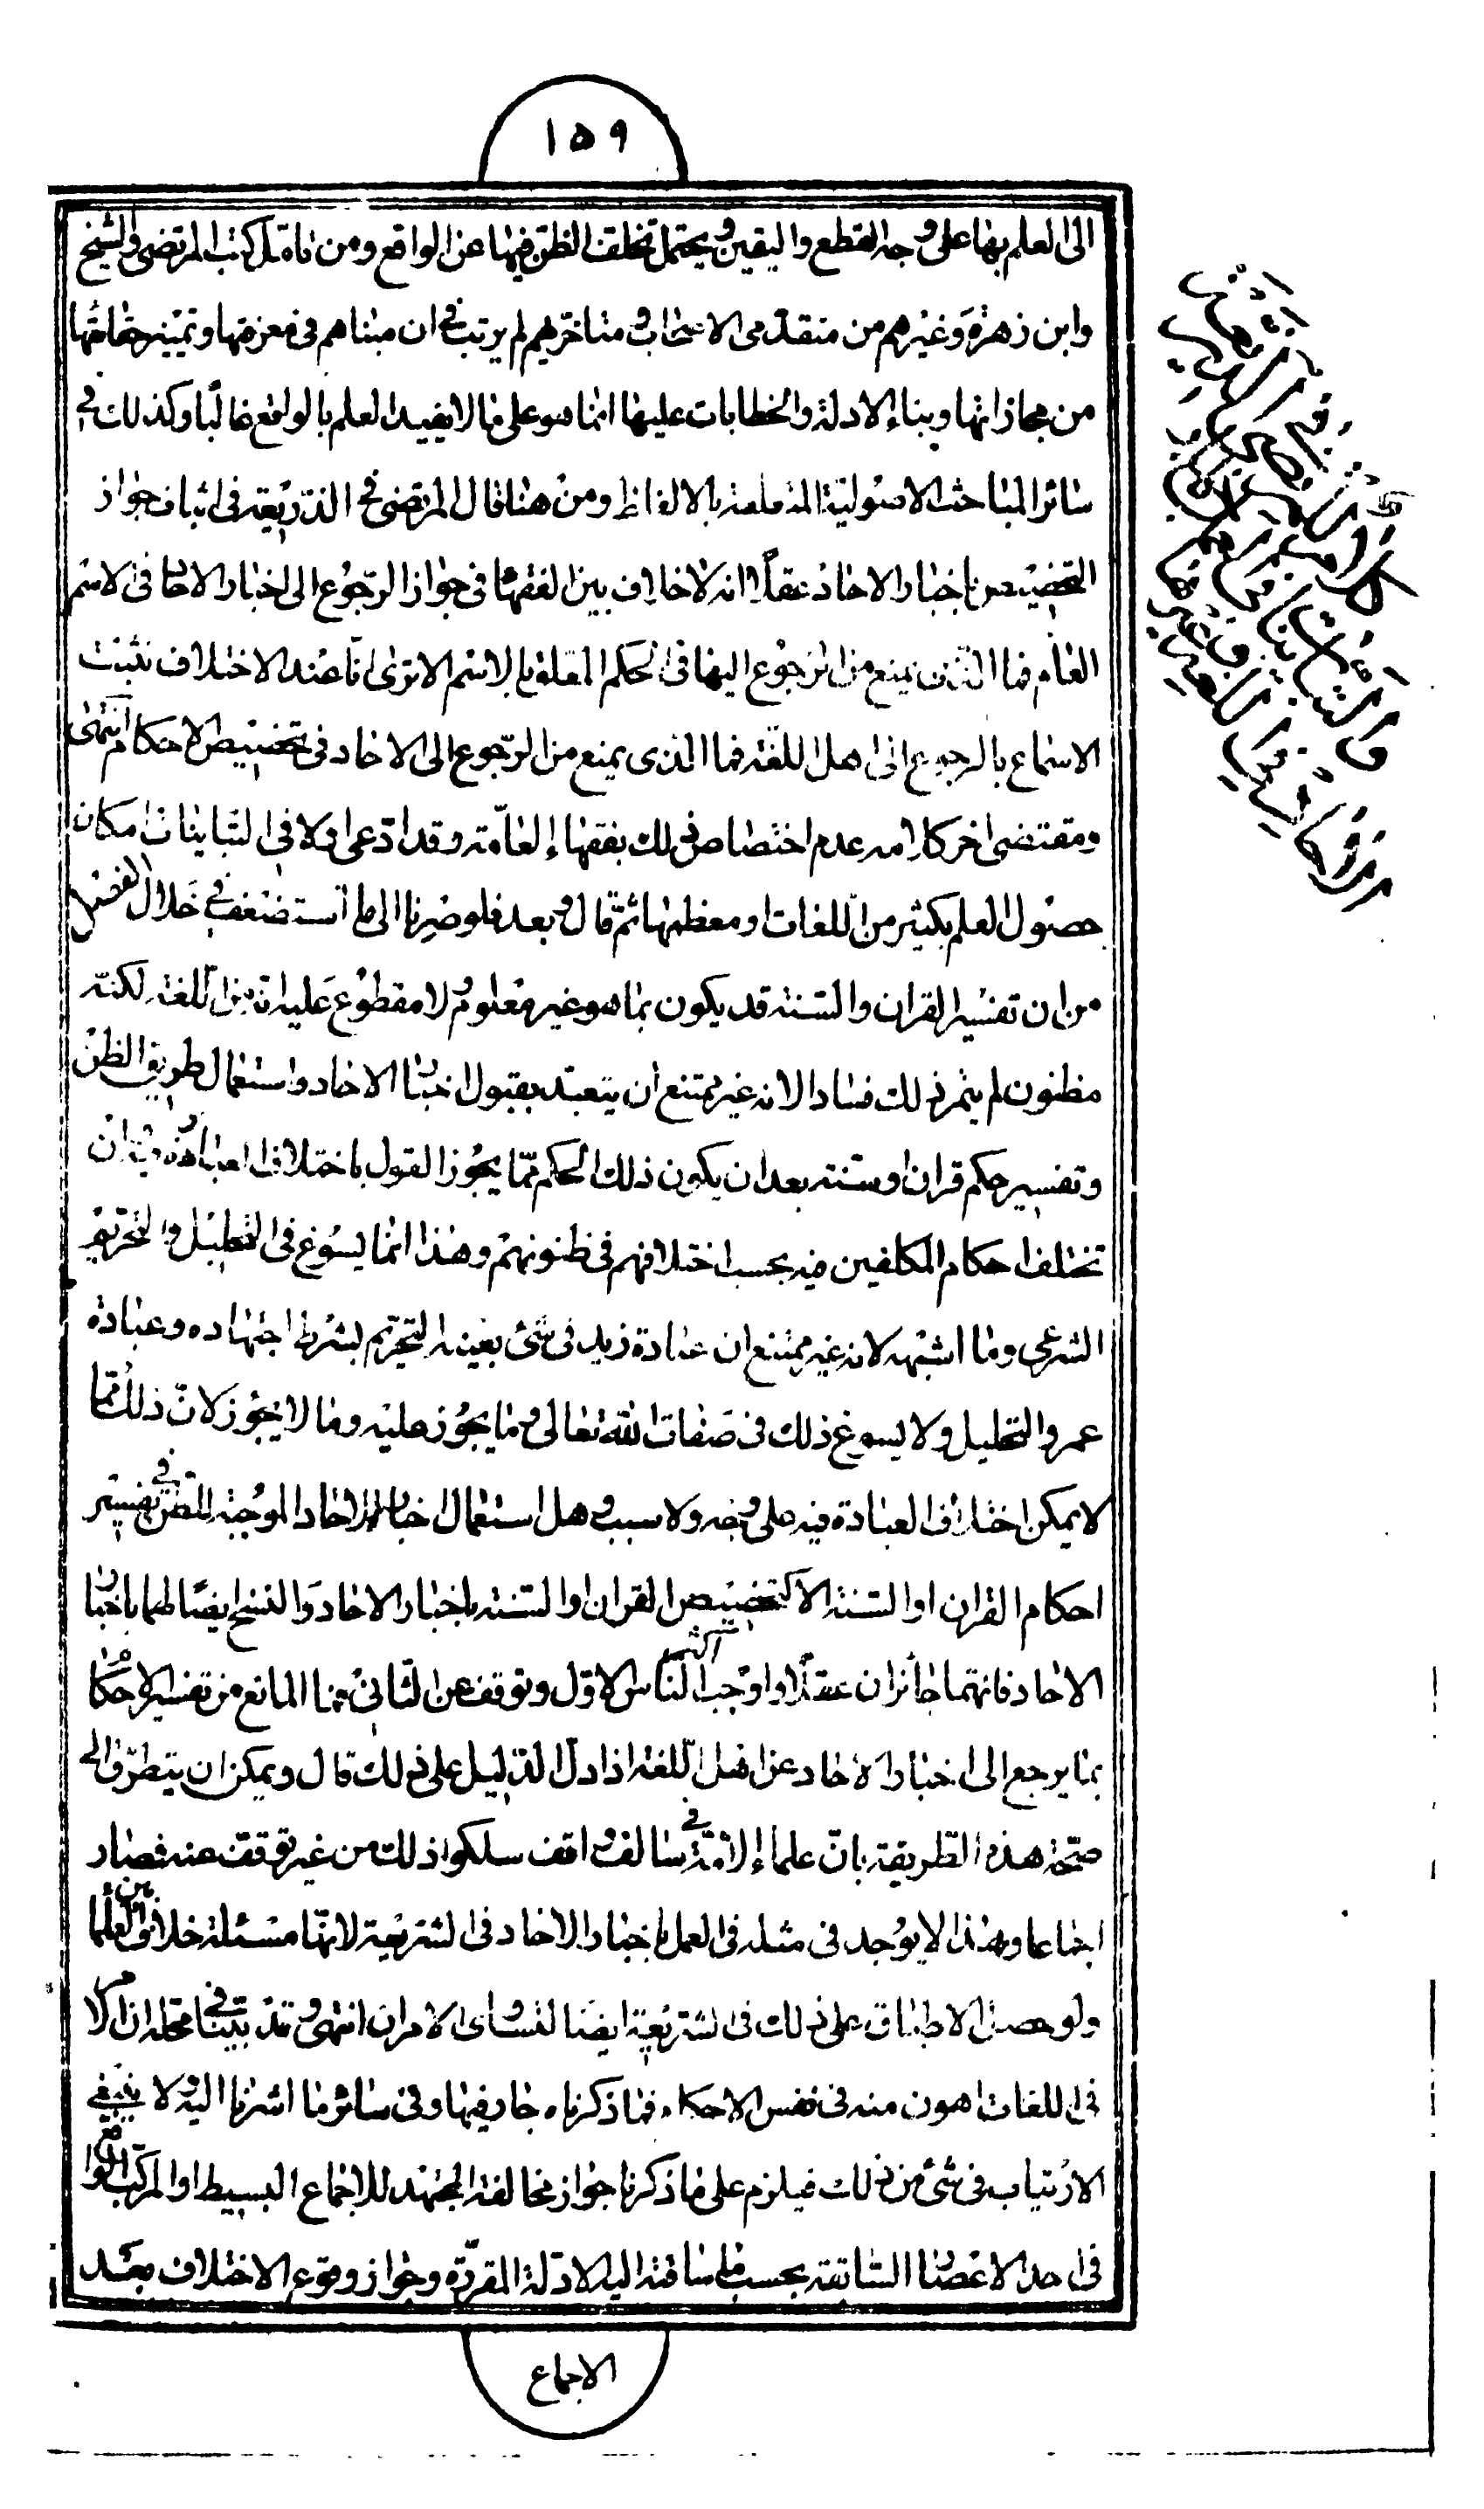 ١٥٩
الى العلم بها على وجه القطع واليقين ويحتمل تخلف الظن فيها عن الواقع ومن تأمّل كتب المرتضى والشيخ
وابن زهرة وغيرهم من متقدمى الاصحاب ومتاخريهم لم يرتب فى ان مبناهم فى معرفتها وتمييز حقايقها
من مجازاتها وبناء الادلة والخطابات عليها انما هو على ما لا يفيد العلم بالواقع غالبا وكذلك فى
سائر المباحث الاصولية المتعلقة بالالفاظ ومن هنا قال المرتضى فى الذريعة فى اثبات جواز
التخصيص باخبار الاحاد عقلا انه لا خلاف بين الفقهاء فى جواز الرجوع الى اخبار الاحاد فى الاسم
العام فما الذى يمنع من الرجوع اليها فى الحكم المعلق بالاسم الا ترى انا عند الاختلاف نثبت
الاسماء بالرجوع الى اهل اللغة فما الذى يمنع من الرجوع الى الاحاد فى تخصيص الاحكام انتهى
ومقتضى اخر كلامه عدم اختصاص ذلك بفقهاء العامة وقد ادعى اولا فى التباينات امكان
حصول العلم بكثير من اللغات او معظمها ثم قال وبعد فلو صرنا الى ما استضعف فى خلال الفصل
من ان تفسير القران والسنة قد يكون بما هو غير معلوم ولا مقطوع عليه انه من اللغة لكنه
مظنون لم يثمر ذلك فسادا لانه غير ممتنع ان يتعبد بقبول اخبار الاحاد واستعمال طريق الظن
وتفسير حكم قران او سنة بعد ان يكون ذلك الحكم مما يجوز القول باختلاف العبادة فيه وان
تختلف احكام المكلفين فيه بحسب اختلافهم فى ظنونهم وهذا انما يسوغ فى التحليل والتحريم
الشرعى وما اشبهه لانه غير ممتنع ان عبادة زيد فى شئ بعينه التحريم بشرط اجتهاده وعبادة
عمرو التحليل ولا يسوغ ذلك فى صفات الله تعالى وما يجوز عليه وما لا يجوز لان ذلك مما
لا يمكن اختلاف العبادة فيه على وجه ولا سبب وهل استعمال اخبار الاحاد الموجبة للظن فى تفسير
احكام القران او السنة الا كتخصيص القران او السنة باخبار الاحاد والنسخ ايضا لهما باخبار
الاحاد فانهما جائزان عقلا واوجب اكثر الناس الاول وتوقف عن الثانى فما المانع من تفسير الاحكام
بما يرجع الى اخبار الاحاد عن اهل اللغة اذا دل الدليل على ذلك قال ويمكن ان يتطرق الى
صحة هذه الطريقة بان علماء الامة فى سالف واقف سلكوا ذلك من غير توقف عنه فصار
اجماعا وهذا لا يوجد فى مثله فى العمل باخبار الاحاد فى الشريعة لانها مسئلة خلاف بين العلماء
ولو حصل الاطباق على ذلك فى الشريعة ايضا لتساوى الامران انتهى وقد بيّنا فى محله ان الامر
فى اللغات اهون منه فى نفس الاحكام فما ذكرناه جار فيها وفى سائر ما اشرنا اليه ولا ينبغى
الارتياب فى شئ من ذلك فيلزم على ما ذكرنا جواز مخالفة المجتهد للاجماع البسيط او المركب الواقع
فى احد الاعصار السابقة بحسب ما ساقته اليه الادلة المقررة وجواز وقوع الاختلاف بعد
الاجماع